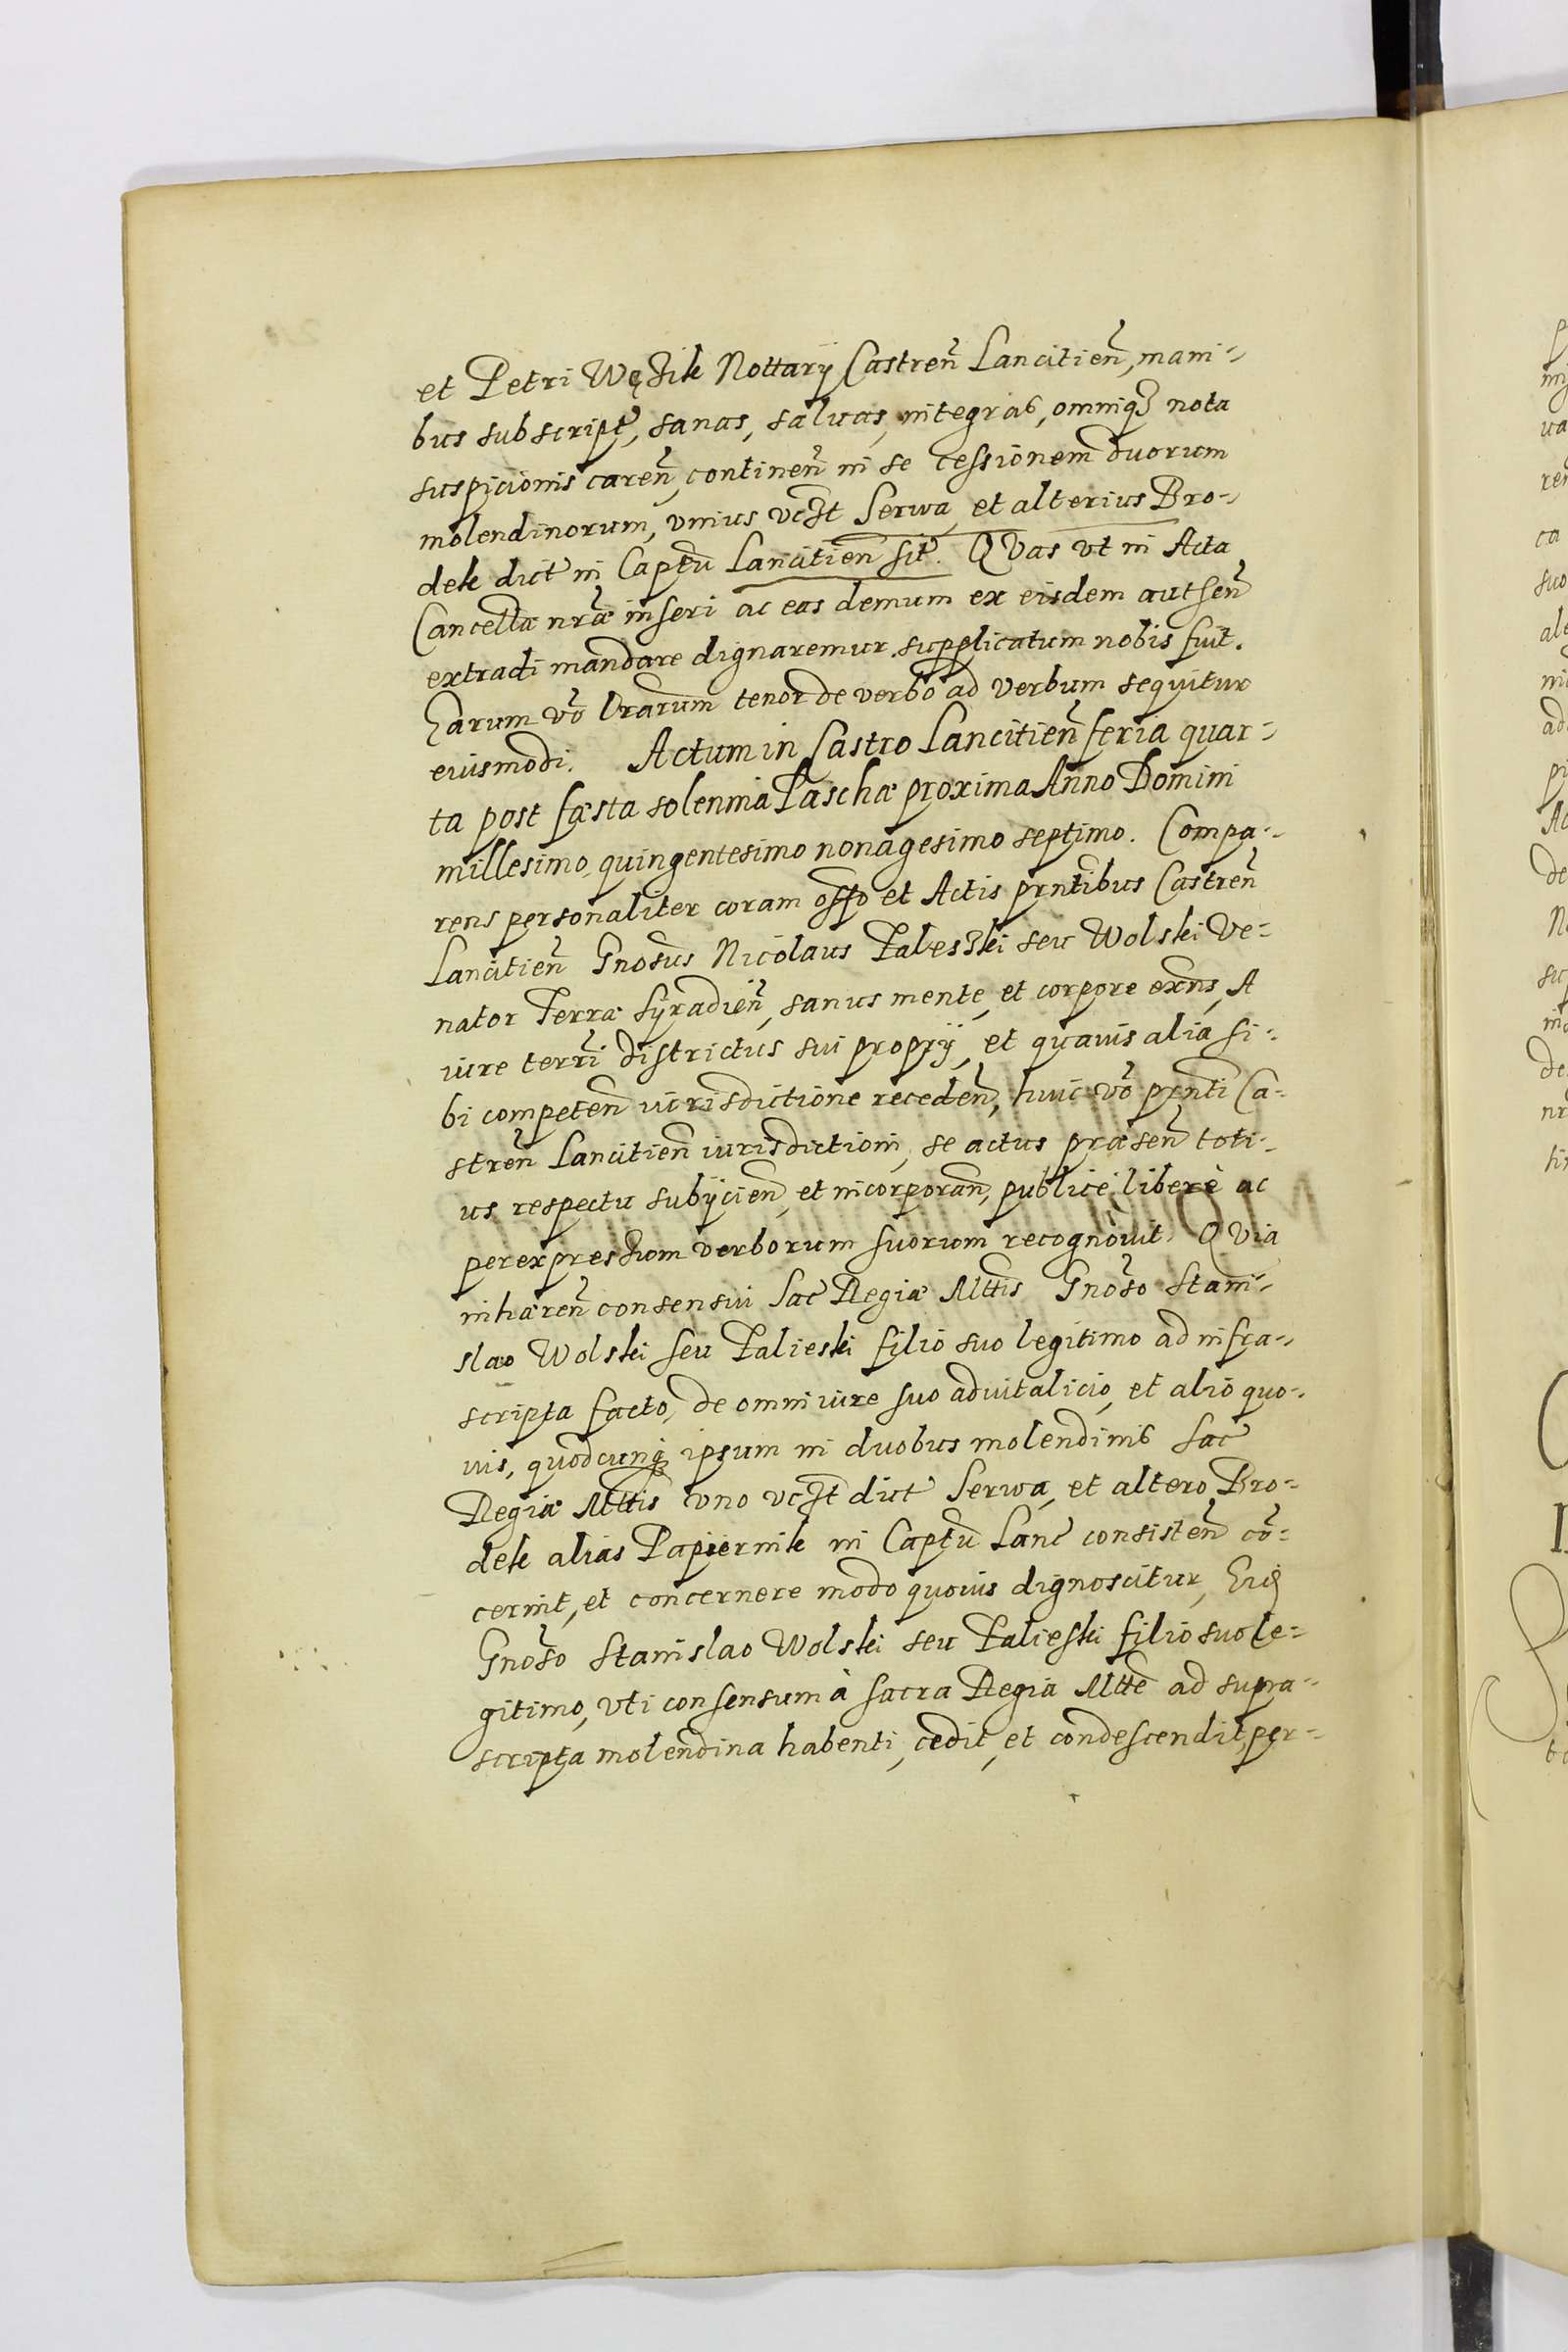 et Petri Wężik Nottarij Castreñ Lancitieñ, mani-
bus subscript, sanas, saluas, integras, omniq₃ nota
suspicionis careñ, continen̄ in se cessionem duorum
molendinorum, vnius vc₃t Serwa, et alterius Bro-
dek dict in Capt̄u Lancitien̄ sit. QVas vt in Acta
Cancellæ nr̄æ inseri ac eas demum ex eisdem autsen̄
extradi mandare dignaremur supplicatum nobis fuit.
Earum vō lr̄arum tenor de verbo ad verbum sequitur
eiusmodi. Actum in Castro Lancitien̄ feria quar-
ta post fæsta solennia Paschæ proxima Anno Domini
millesimo, quingentesimo nonagesimo septimo. Compa-
rens personaliter coram offo et Actis pr̄ntibus Castren̄
Lancitien̄ Gnosus Nicolaus Taleski seu Wolski Ve-
nator Terræ Syradien̄, sanus mente, et corpore exn̄s, A
iure terr̄i districtus sui proprij, et quauis alia si-
bi competen̄ iurisdictione receden̄, huic vō pr̄nti Ca-
stren̄ Lancitien̄ iurisdictioni, se actus præsen̄ toti-
us respectu subijcien̄, et incorporan̄, publicè liberè ac
per expressum verborum suorum recognouit. QVia
inhæren̄ consensui Sac Regiæ Mttis Gnoso Stani-
slao Wolski seu Talieski filio suo legitimo ad infra-
scripta facto, de omni iure suo aduitalicio, et alio quo-
uis, quodcunq₃ ipsum in duobus molendinis Sac
Regiæ Mttis vno vc₃t dict Serwa, et altero Bro-
dek alias Papiernik in Capt̄u Lanc consisten̄ cō-
cernit, et concernere modo quouis dignoscitur, Eid
Gnoso Stanislao Wolski seu Talieski filio suo le-
gitimo, vti consensum à Sacra Regia Mtte ad supra-
scripta molendina habenti, cedit, et condescendit, per-